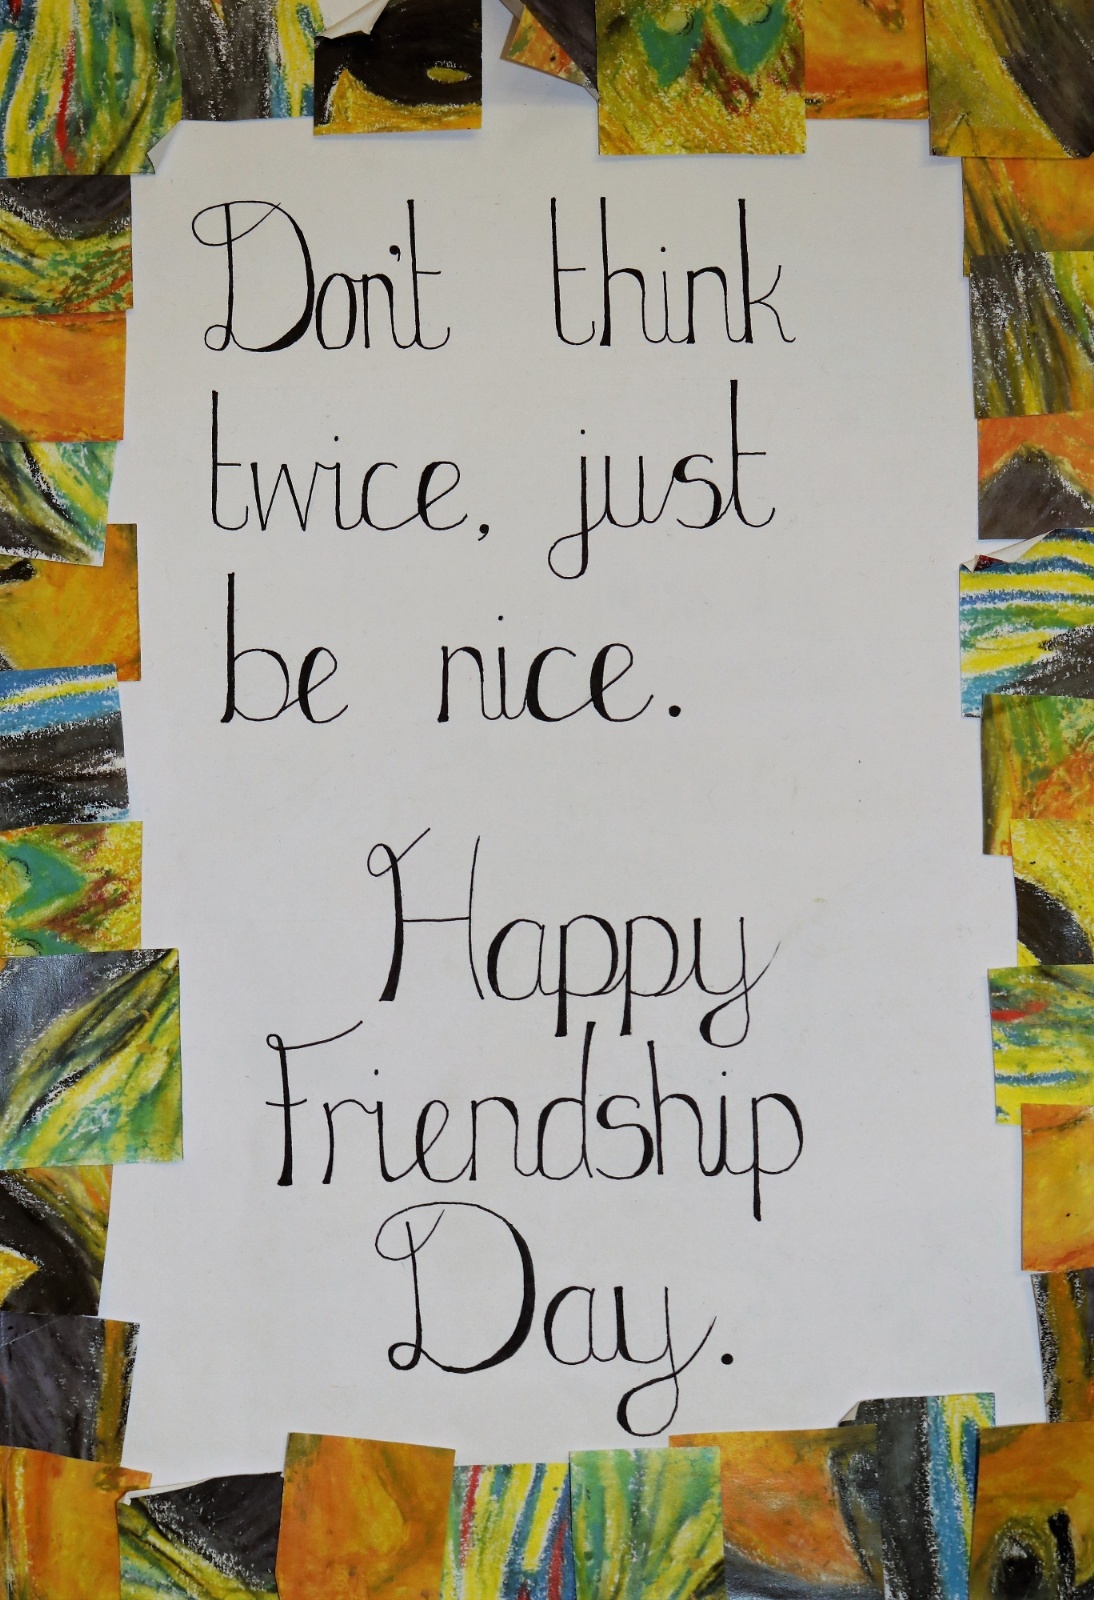 Don't think
twice, just
be nice.
Happy
Friendship
Day.